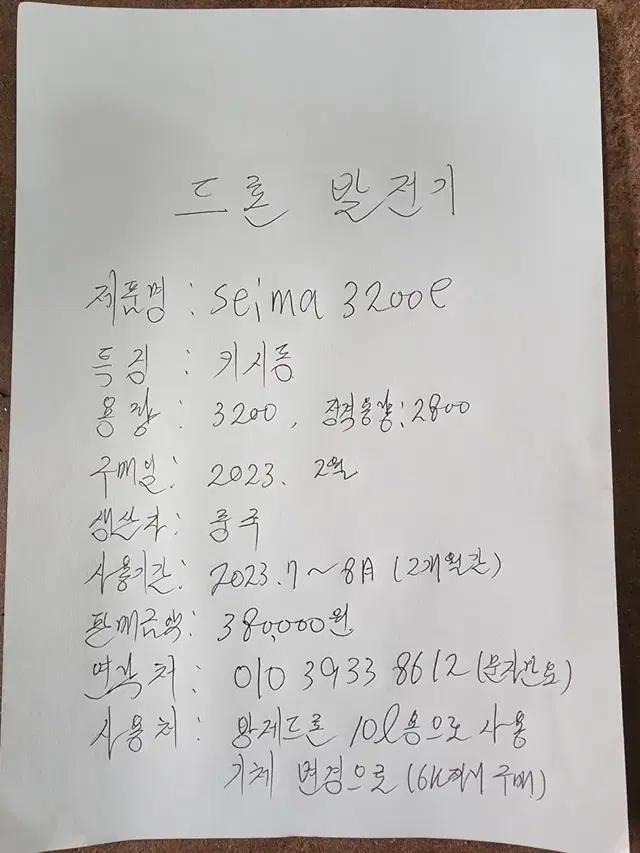 드론 발전기
제품명 : seima 3200e
특징 : 키시동
용량 : 3200, 정격용량:2800
구매일: 2023. 2월
생산지: 중국
사용기간: 2023.7~8月 (2개월간)
판매금액: 380,000원
연락처: 010 3933 8612 (문자만요)
사용처: 방제드론 10l용으로 사용
기체 변경으로 (구매)